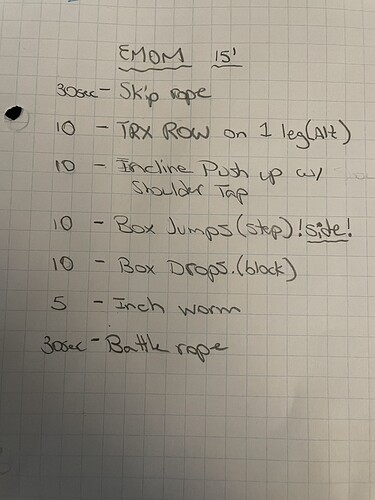 EMOM 15'
30sec - Skip rope
10 - TRX ROW on 1 leg(Alt)
10 - Incline Push up w/
Shoulder Tap
10 - Box Jumps (step) !side!
10 - Box Drops. (block)
5 - Inch worm
30sec - Battle rope